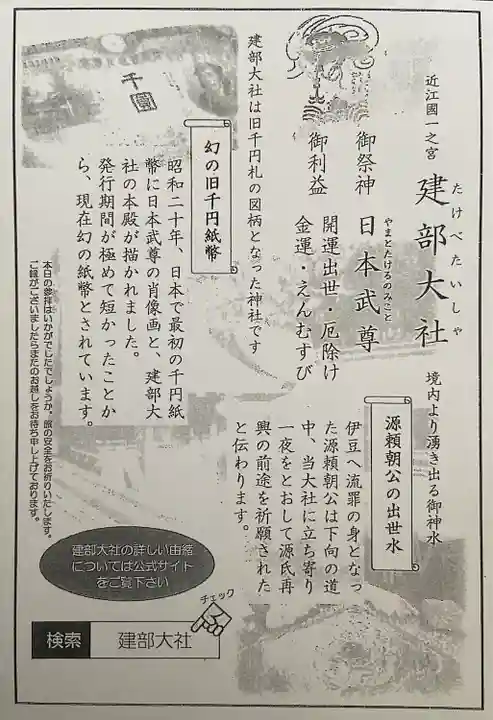 近江國一之宮
建部大社
たけべたいしゃ
御祭神 日本武尊
やまとたけるのみこと
御利益 開運出世・厄除け
金運・えんむすび
建部大社は旧千円札の図柄となった神社です
千圓
幻の旧千円紙幣
昭和二十年、日本で最初の千円紙
幣に日本武尊の肖像画と、建部大
社の本殿が描かれました。
発行期間が極めて短かったことか
ら、現在幻の紙幣とされています。
境内より湧き出る御神水
源頼朝公の出世水
伊豆へ流罪の身となっ
た源頼朝公は下向の道
中、当大社に立ち寄り
一夜をとおして源氏再
興の前途を祈願された
と伝わります。
本日の参拝はいかがでしたでしょうか。旅の安全をお祈りいたします。
ご縁がございましたらまたのお越しをお待ち申し上げております。
建部大社の詳しい由緒
については公式サイト
をご覧下さい
チェック
検索 建部大社